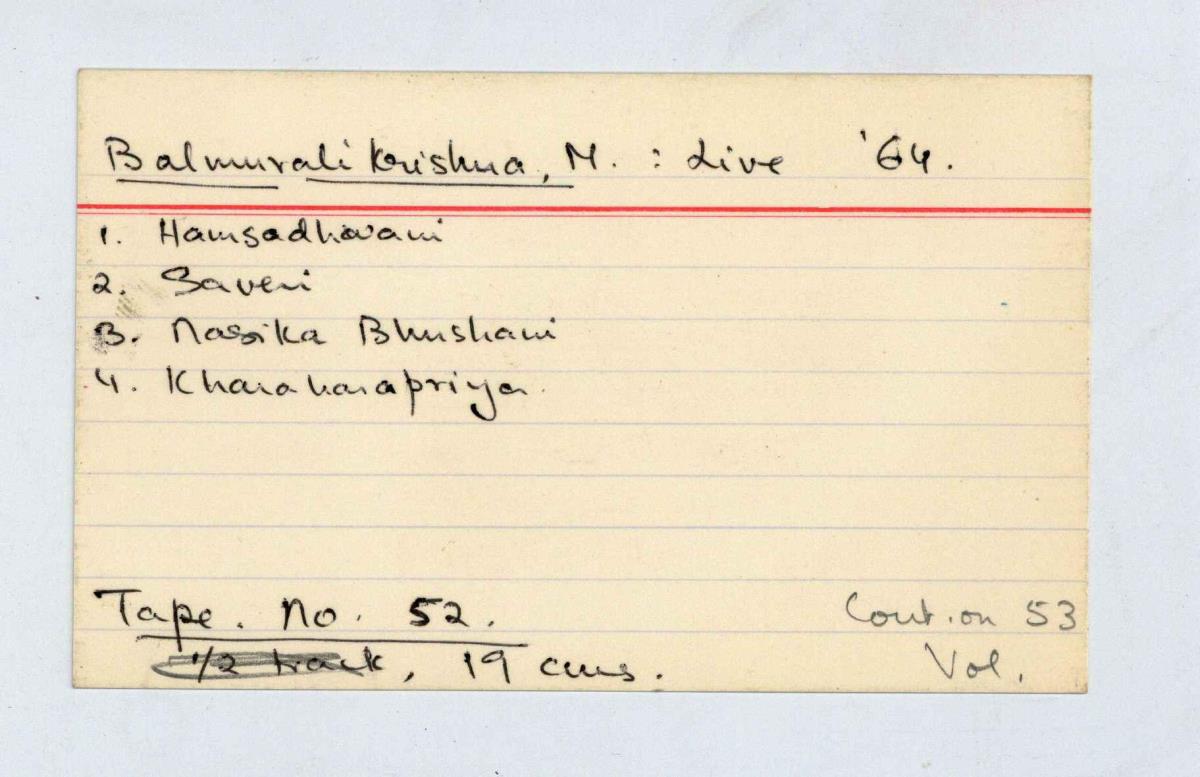 Balmurali Krishna, M. : Live '64.
1. Hamsadhwani
2. Saveri
3. Nasika Bhushani
4. Kharaharapriya
Tape. No. 52. Cont. on 53
1/2 track, 19 cms. Vol.